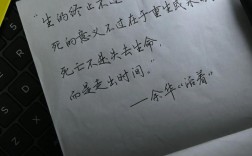 “生的终止不过
死的意义不过在于重生或永
死亡不是失去生命，
而是走出时间。”
——余华《活着》